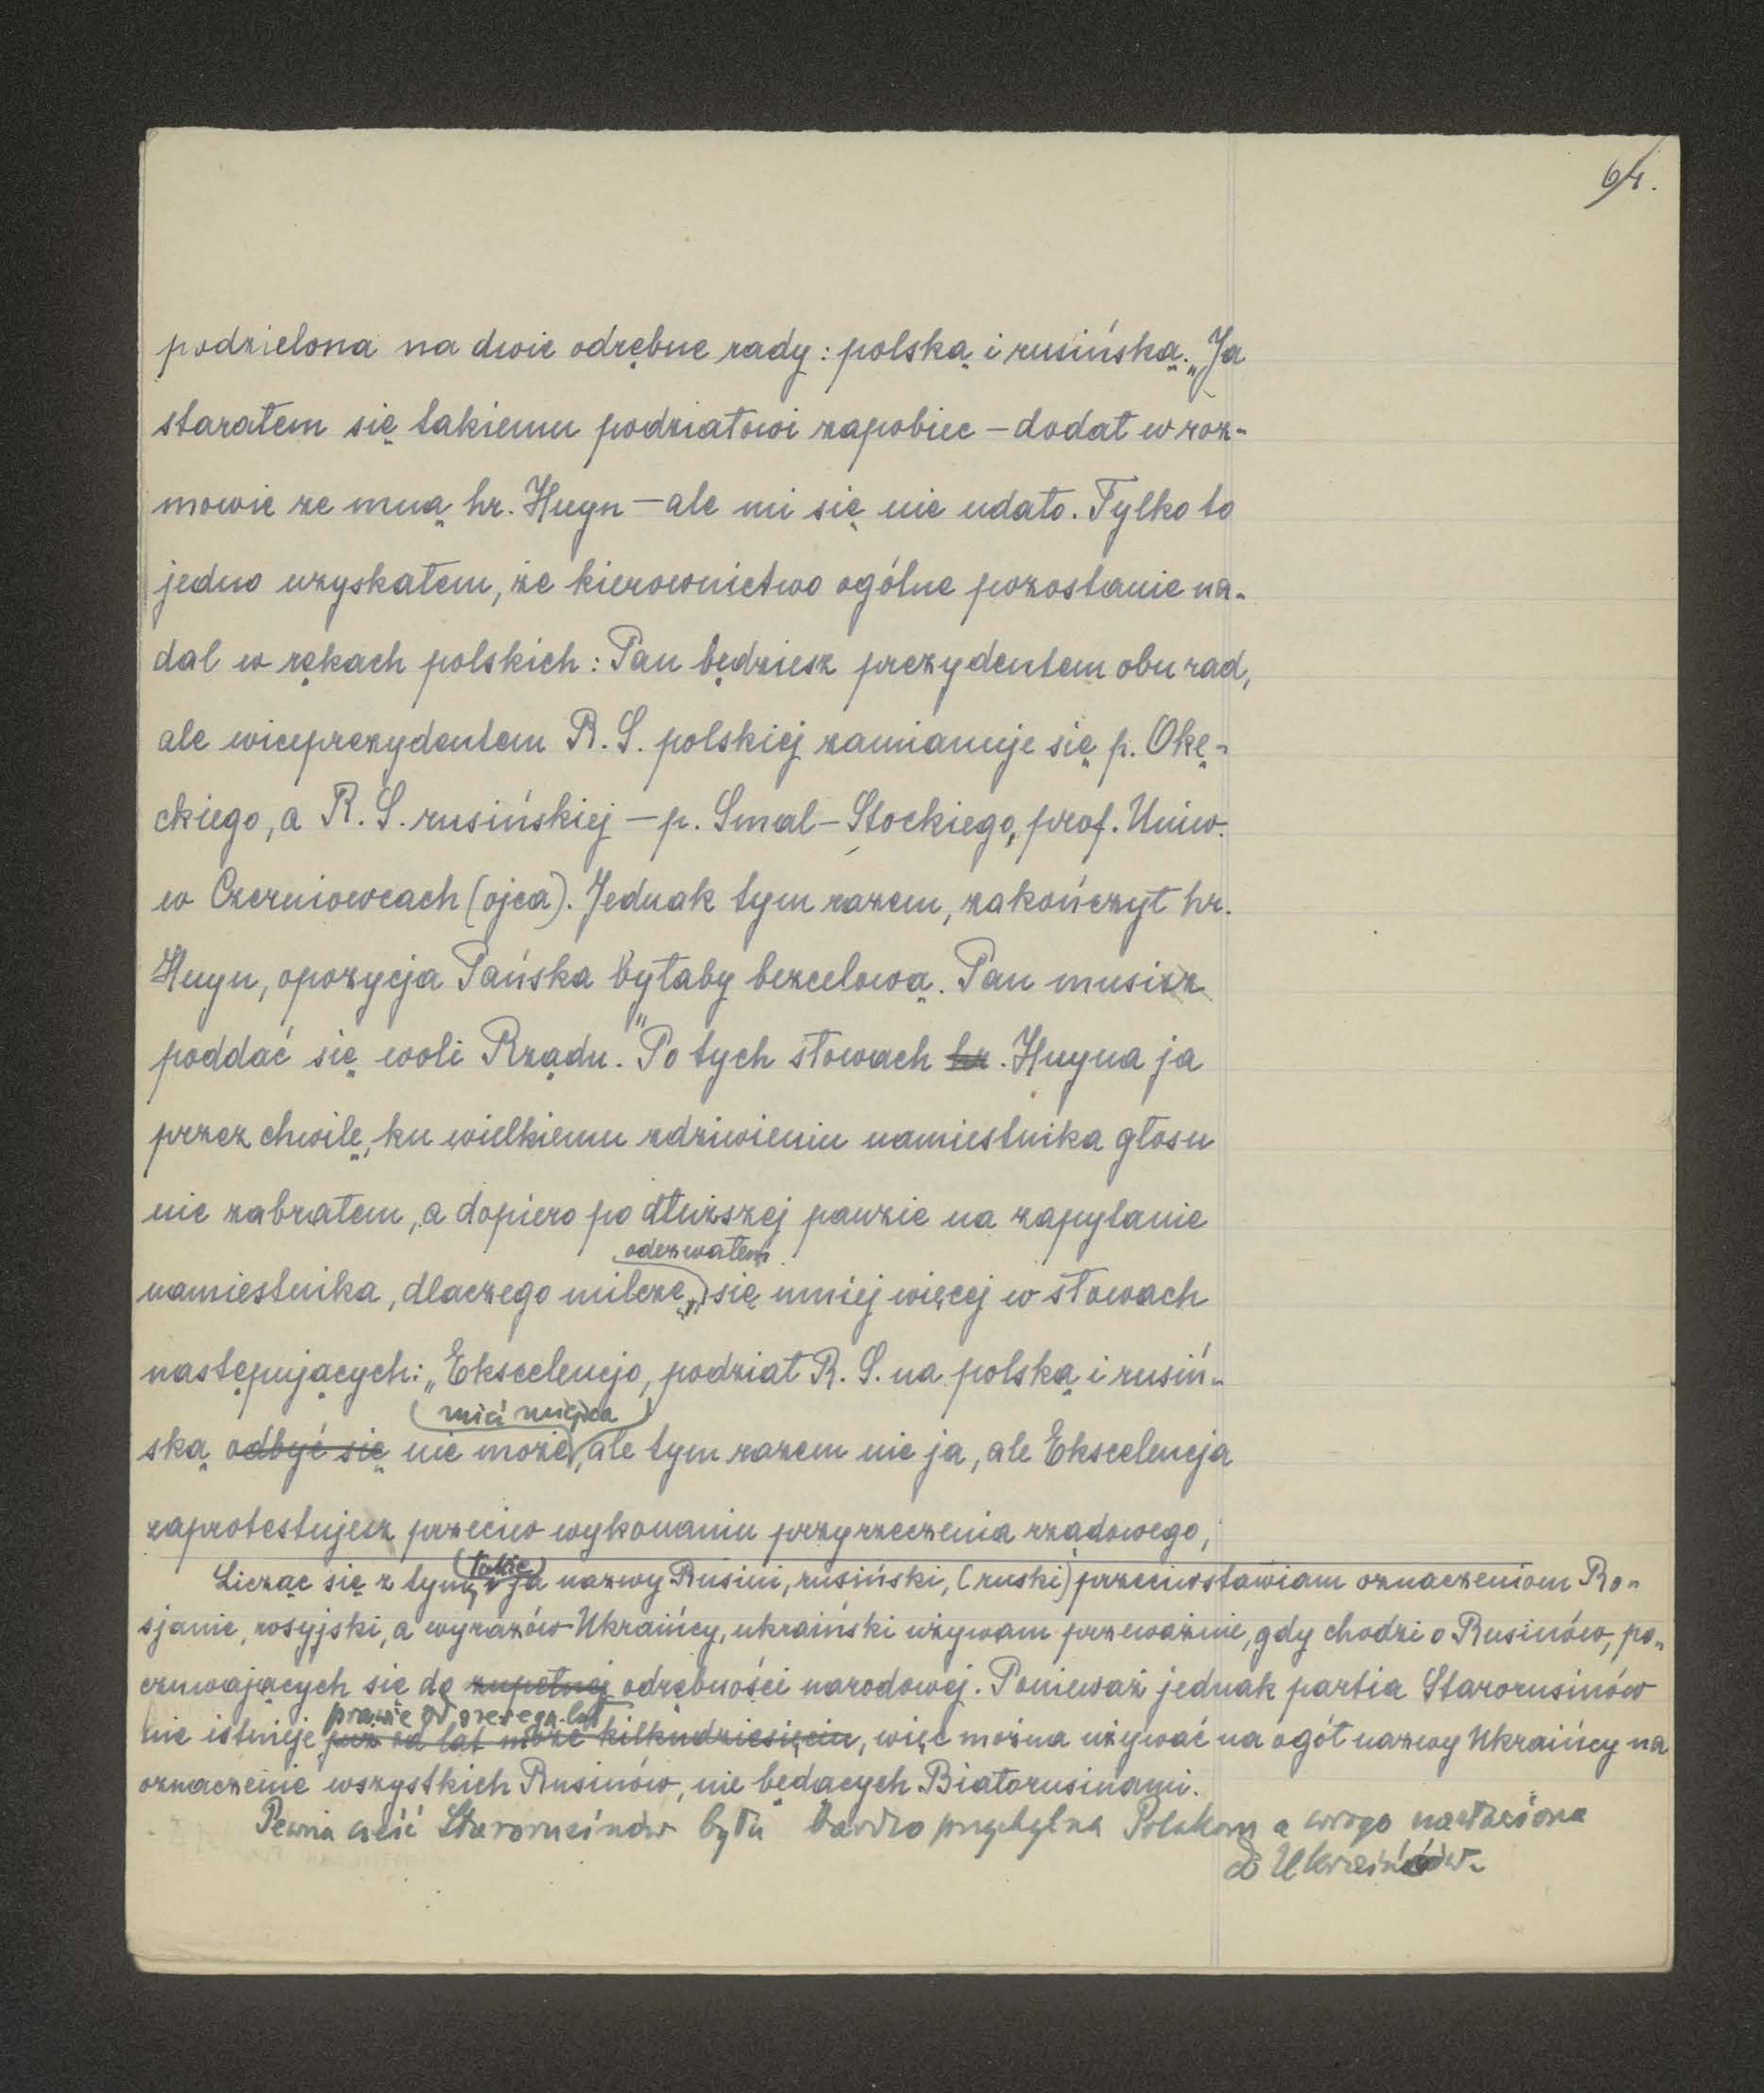 64.
podzielona na dwie odrębne rady: polską i rusińską. „Ja
starałem się takiemu podziałowi zapobiec – dodał w roz-
mowie ze mną hr. Huyn – ale mi się nie udało. Tylko to
jedno uzyskałem, że kierownictwo ogólne pozostanie na-
dal w rękach polskich: Pan będziesz prezydentem obu rad,
ale wiceprezydentem R. S. polskiej zamianuje się p. Okę-
ckiego, a R. S. rusińskiej – p. Smal-Stockiego, prof. Uniw.
w Czerniowcach (ojca). Jednak tym razem, zakończył hr.
Huyn, opozycja Pańska byłaby bezcelową. Pan musisz
poddać się woli Rządu." Po tych słowach hr. Huyna ja
przez chwilę, ku wielkiemu zdziwieniu namiestnika głosu
nie zabrałem, a dopiero po dłuższej pauzie na zapytanie
odezwałem
namiestnika, dlaczego milczę, się mniej więcej w słowach
następujących: „Ekscelencjo, podział R. S. na polską i rusiń-
mieć miejsca
ską odbyć się nie może, ale tym razem nie ja, ale Ekscelencja
zaprotestujesz przeciw wykonaniu przyrzeczenia rządowego,
także
Licząc się z tym, i ja nazwy Rusini, rusiński, (ruski) przeciwstawiam oznaczeniom Ro-
sjanie, rosyjski, a wyrazów Ukraińcy, ukraiński używam przeważnie, gdy chodzi o Rusinów, po-
czuwających się do zupełnej odrębności narodowej. Ponieważ jednak partia Starorusinów
prawie od szeregu lat
nie istnieje już od lat może kilkudziesięciu, więc można używać na ogół nazwy Ukraińcy na
oznaczenie wszystkich Rusinów, nie będących Białorusinami.
Pewna część Starorusinów była bardzo przychylna Polakom a wrogo nastrojona
do Ukraińców.